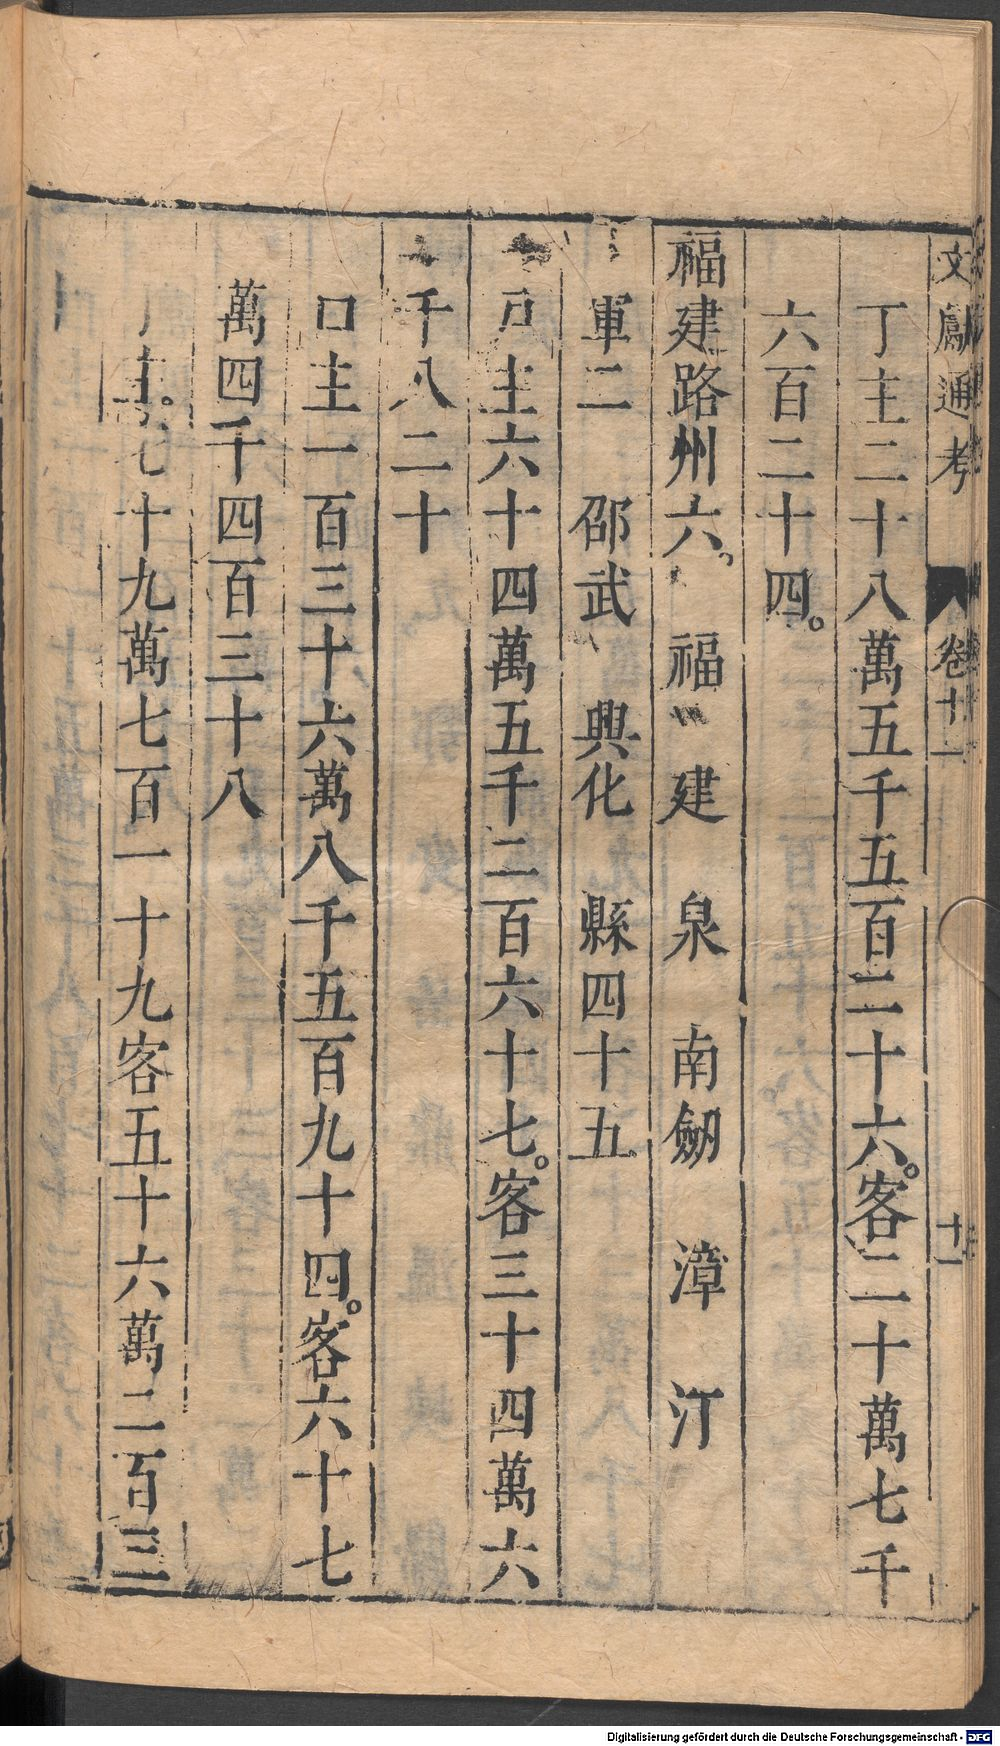 文獻通考 卷十一 十一
丁主二十八萬五千五百二十六。客二十萬七千
六百二十四。
福建路州六。 福 建 泉 南劒 漳 汀
軍二 邵武 興化 縣四十五
戸主六十四萬五千二百六十七。客三十四萬六
千八二十
口主一百三十六萬八千五百九十四。客六十七
萬四千四百三十八
七十九萬七百一十九客五十六萬二百三
Digitalisierung gefördert durch die Deutsche Forschungsgemeinschaft - DFG